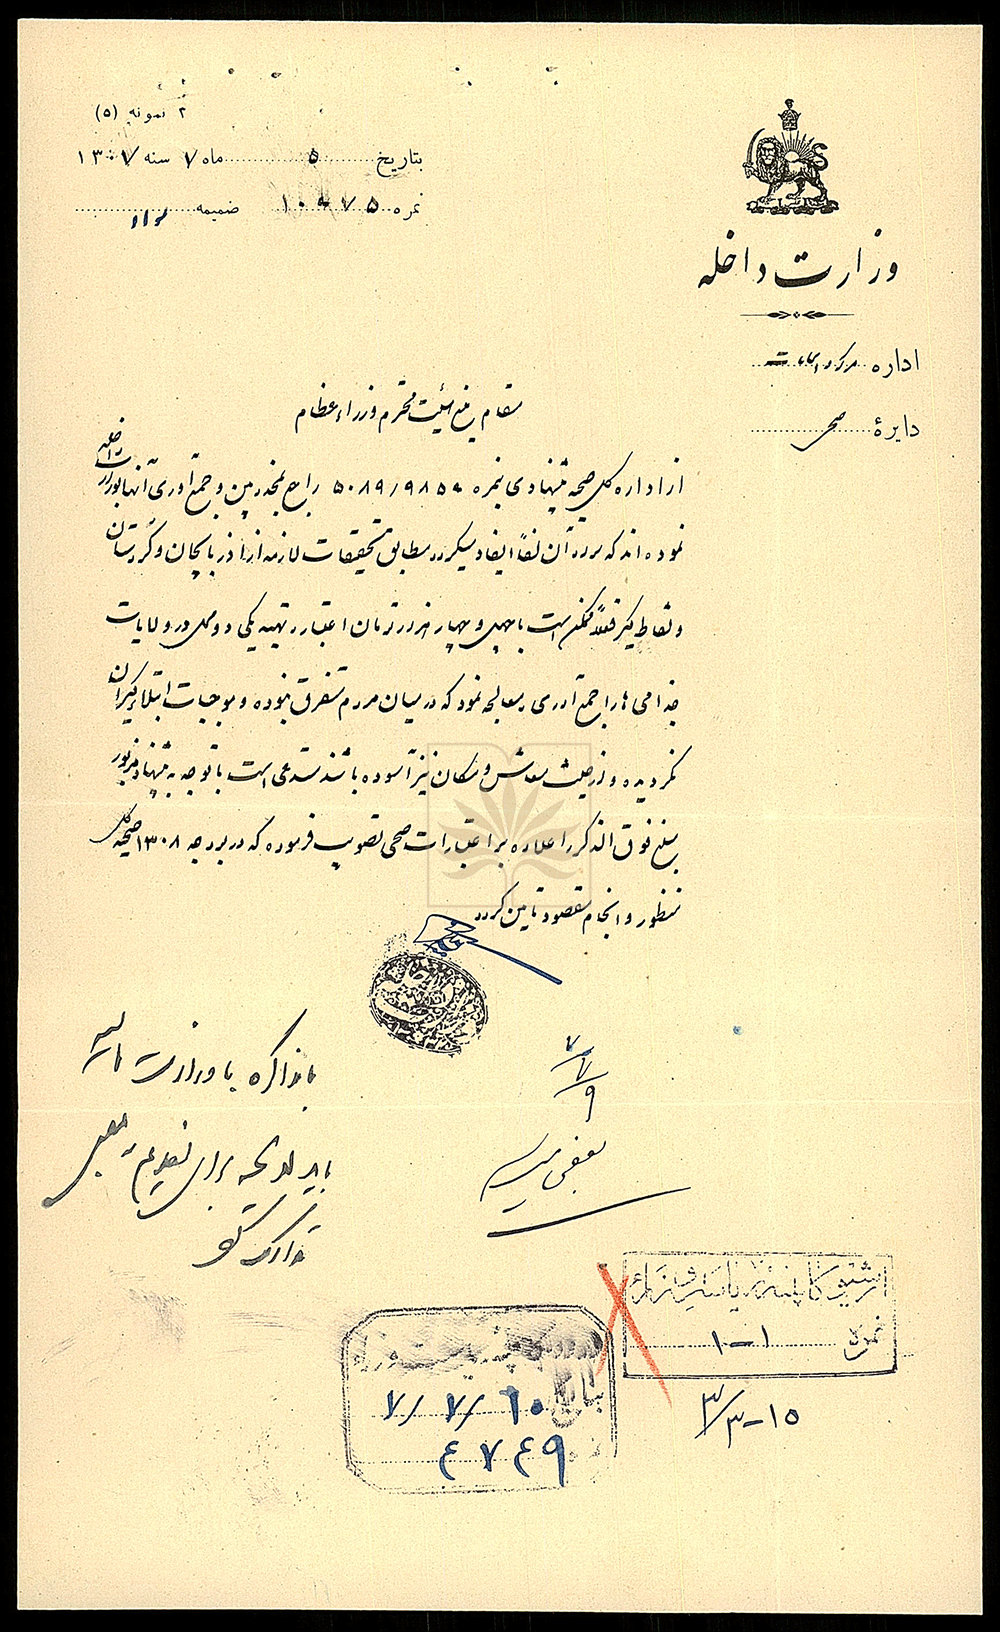 ۲ نمونه (۵)
بتاریخ ۵ ماه ۷ سنه ۱۳۰۷
نمره ۱۰۴۷۵ ضمیمه سواد
وزارت داخله
اداره
دایرهٔ صحی
مقام منیع هیئت محترم وزراء عظام
از اداره کل صحیه پیشنهادی بنمره ۵۰۸۹/۹۸۵۴ راجع بمجذومین و جمع آوری آنها بوزارت داخله
نموده اند که سواد آن لفاً ایفاد میگردد مطابق تحقیقات لازمه از آذربایجان و کردستان
و نقاط دیگر فعلاً ممکن است با چهل و چهار هزار تومان اعتبار و تهیه یکی دو محل در ولایات
جذامی ها را جمع آوری و معالجه نمود که در میان مردم متفرق نبوده و موجبات ابتلاء دیگران
نگردیده و از حیث معاش و مکان نیز آسوده باشند مستدعی است با توجه به پیشنهاد مزبور
مبلغ فوق الذکر را علاوه بر اعتبارات صحی تصویب فرموده که در بودجه ۱۳۰۸ صحیه کل
منظور و انجام مقصود تأمین گردد
با مذاکره با وزارت مالیه
باید لایحه برای تقدیم به مجلس
تدارک شود
۷/۷/۹
آرشیو کابینه ریاست وزراء
نمره ۱-۱
۳/۳-۱۵
ورود کابینه ریاست وزراء
بتاریخ ۷/۷/۱۰
۴۷۴۹